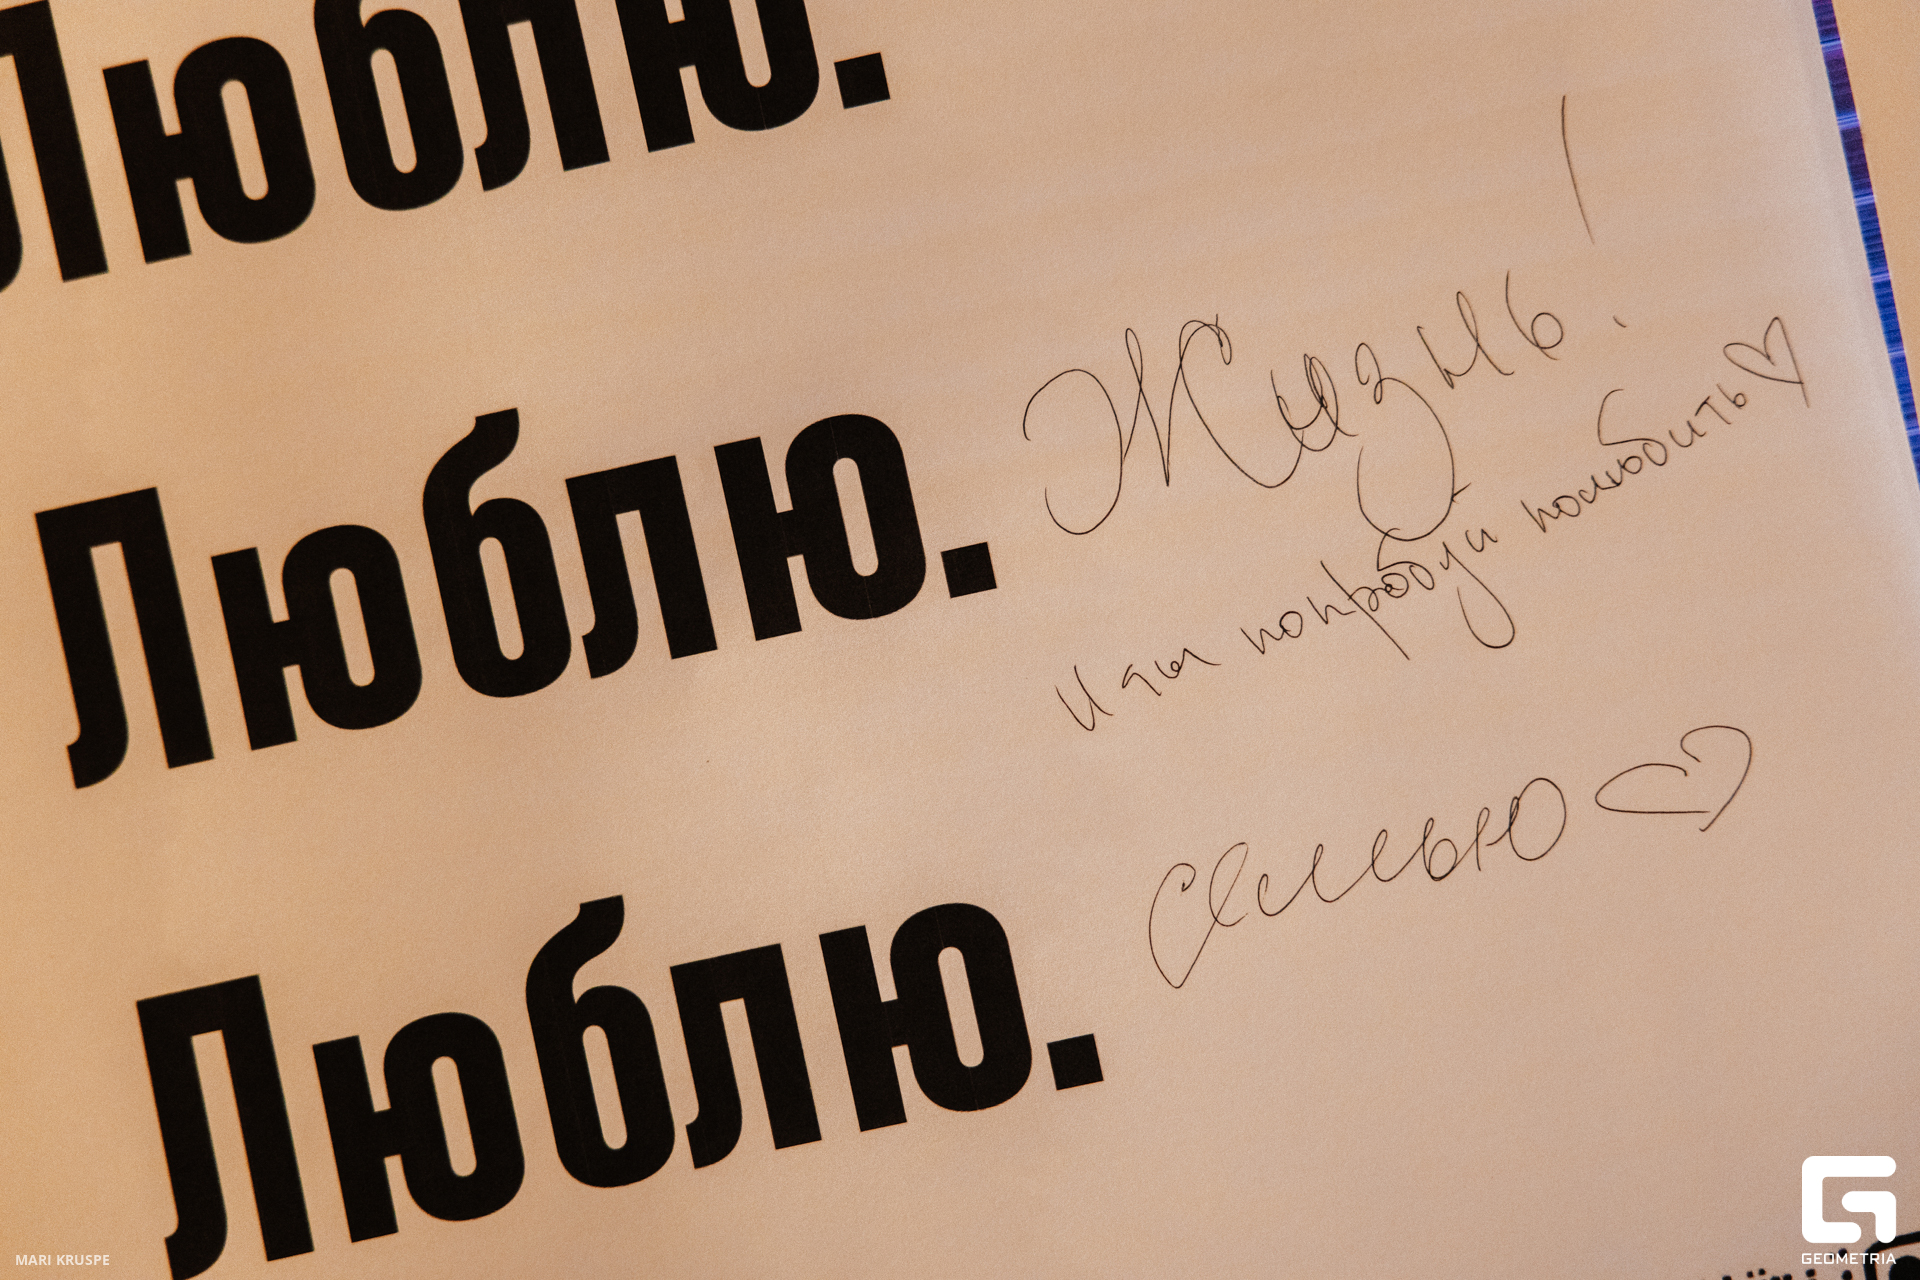 Люблю.
Люблю. Жизнь!
И ты попробуй полюбить♡
Люблю. Семью♡
MARI KRUSPE
GEOMETRIA